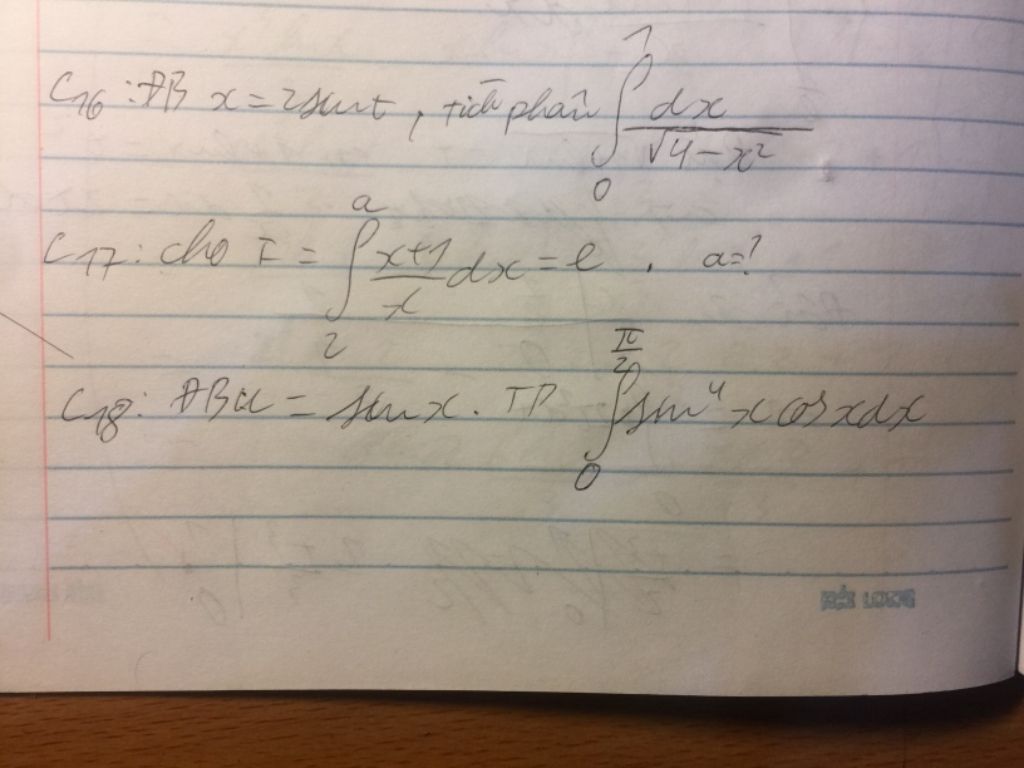 C16: ĐB x = 2sint, tích phân ∫₀¹ dx/√(4-x²)
C17: cho I = ∫₂ᵃ (x+1)/x dx = e. a=?
C18: ĐB u = sinx. TP ∫₀^(π/2) sin⁴xcosxdx